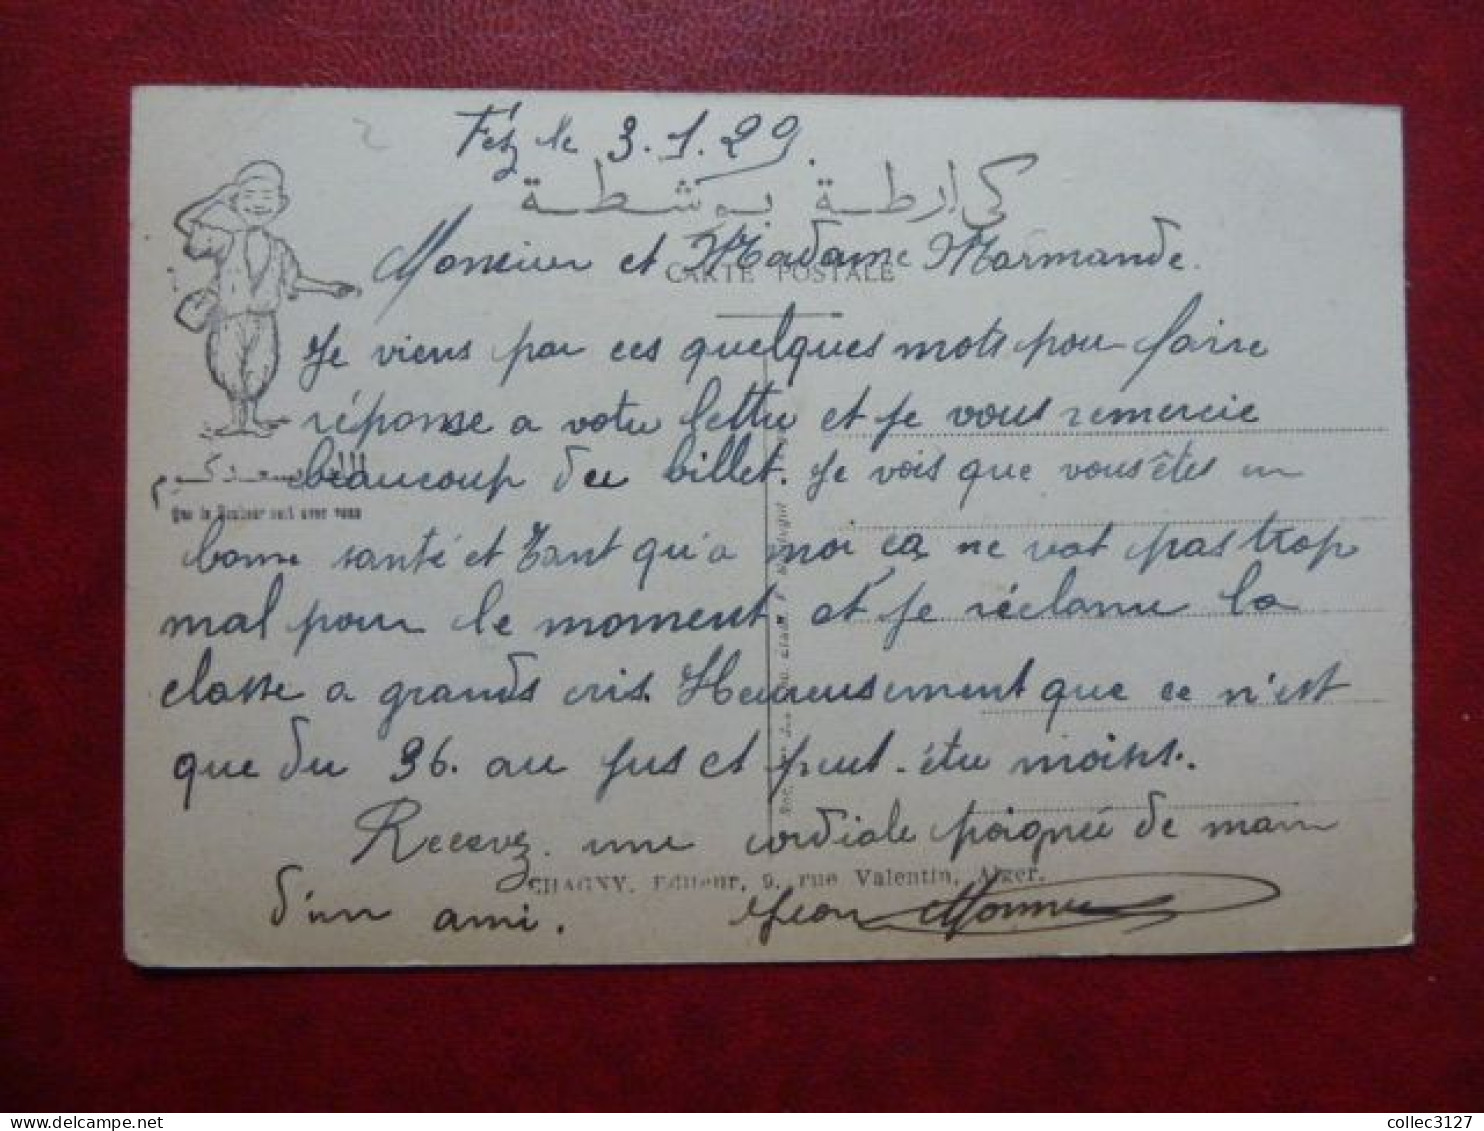 Féz le 3.1.29.
كارطة بوسطة
Monsieur et Madame Marmande.
CARTE POSTALE
Je viens par ces quelques mots pour faire
réponse a votre lettre et je vous remercie
beaucoup du billet. Je vois que vous êtes en
Que le Bonheur soit avec vous
bonne santé et tant qu'a moi ça ne vat pas trop
mal pour le moment et je réclame la
classe a grands cris. Heureusement que ce n'est
que du 96. au jus et peut-être moins.
Recevez une cordiale poignée de main
CHAGNY, Editeur, 9, rue Valentin, Alger.
d'un ami. Jean
collec3127